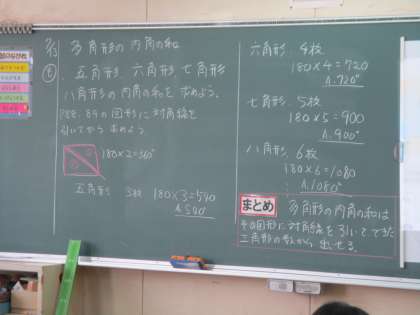 多角形の内角の和
五角形、六角形、七角形
八角形の内角の和を求めよう。
P88.89の図形に対角線を
引いてから求めよう
180×2=360°
五角形 3枚 180×3=540
A.540°
六角形、4枚
180×4=720
A.720°
七角形、5枚
180×5=900
A.900°
八角形、6枚
180×6=1080
A.1080°
まとめ 多角形の内角の和は
その図形に対角線を引いてできた
三角形の数から出せる。